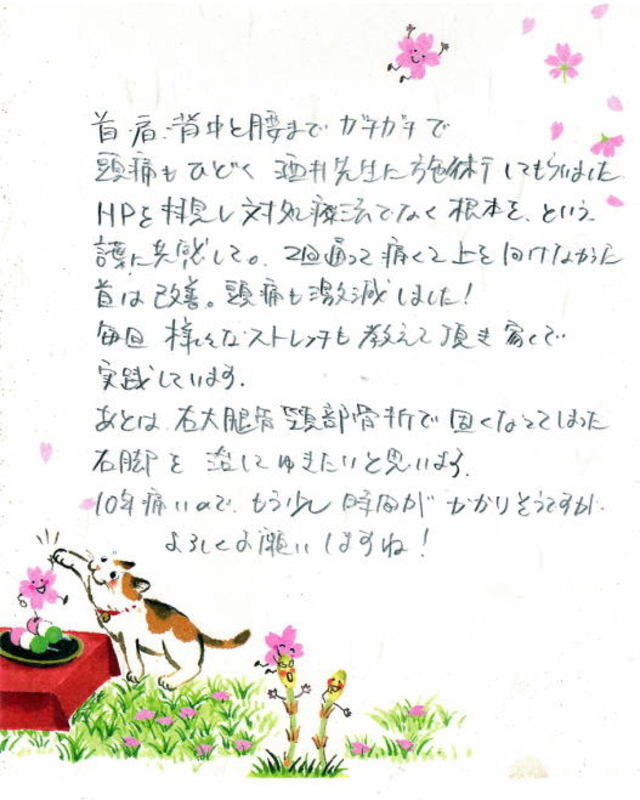 首・肩・背中と腰までガチガチで
頭痛もひどく酒井先生に施術してもらいました
HPを拝見し対処療法でなく根本を、という
護に共感して。2回通って痛くて上を向けなかった
首は改善。頭痛も激減しました！
毎回 様々なストレッチも教えて頂き家で
実践しています。
あとは、右大腿骨頸部骨折で固くなってしまった
右脚を治してゆきたいと思います。
10年痛いので、もう少し時間がかかりそうですが、
よろしくお願いしますね！